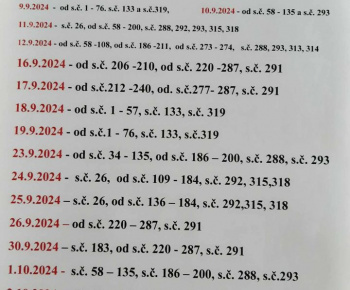 9.9.2024 - od s.č. 1 - 76. s.č. 133 a s.č.319, 10.9.2024 - od s.č. 58 - 135 a s.č. 293
11.9.2024 - s.č. 26, od s.č. 58 - 200, s.č. 288, 292, 293, 315, 318
12.9.2024 - od s.č. 58 -108, od s.č. 186 -211, od s.č. 273 - 274, s.č. 288, 293, 313, 314
16.9.2024 - od s.č. 206 -210, od s.č. 220 -287, s.č. 291
17.9.2024 - od s.č.212 -240, od. s.č.277- 287, s.č. 291
18.9.2024 - od s.č. 1 - 57, s.č. 133, s.č. 319
19.9.2024 - od s.č.1 - 76, s.č. 133, s.č.319
23.9.2024 - od s.č. 34 - 135, od s.č. 186 – 200, s.č. 288, s.č. 293
24.9.2024 - s.č. 26, od s.č. 109 - 184, s.č. 292, 315,318
25.9.2024 – s.č. 26, od s.č. 136 – 184, s.č. 292,315, 318
26.9.2024 – od s.č. 220 – 287, s.č. 291
30.9.2024 – s.č. 183, od s.č. 220 - 287, s.č. 291
1.10.2024 - s.č. 58 – 135, s.č. 186 – 200, s.č. 288, s.č.293